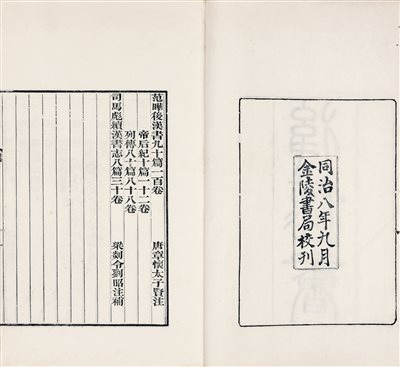 同治八年九月
金陵書局校刊
范曄後漢書九十篇一百卷　唐章懷太子賢注
帝后紀十篇一十二卷
列傳八十篇八十八卷
司馬彪續漢書志八篇三十卷　梁剡令劉昭注補